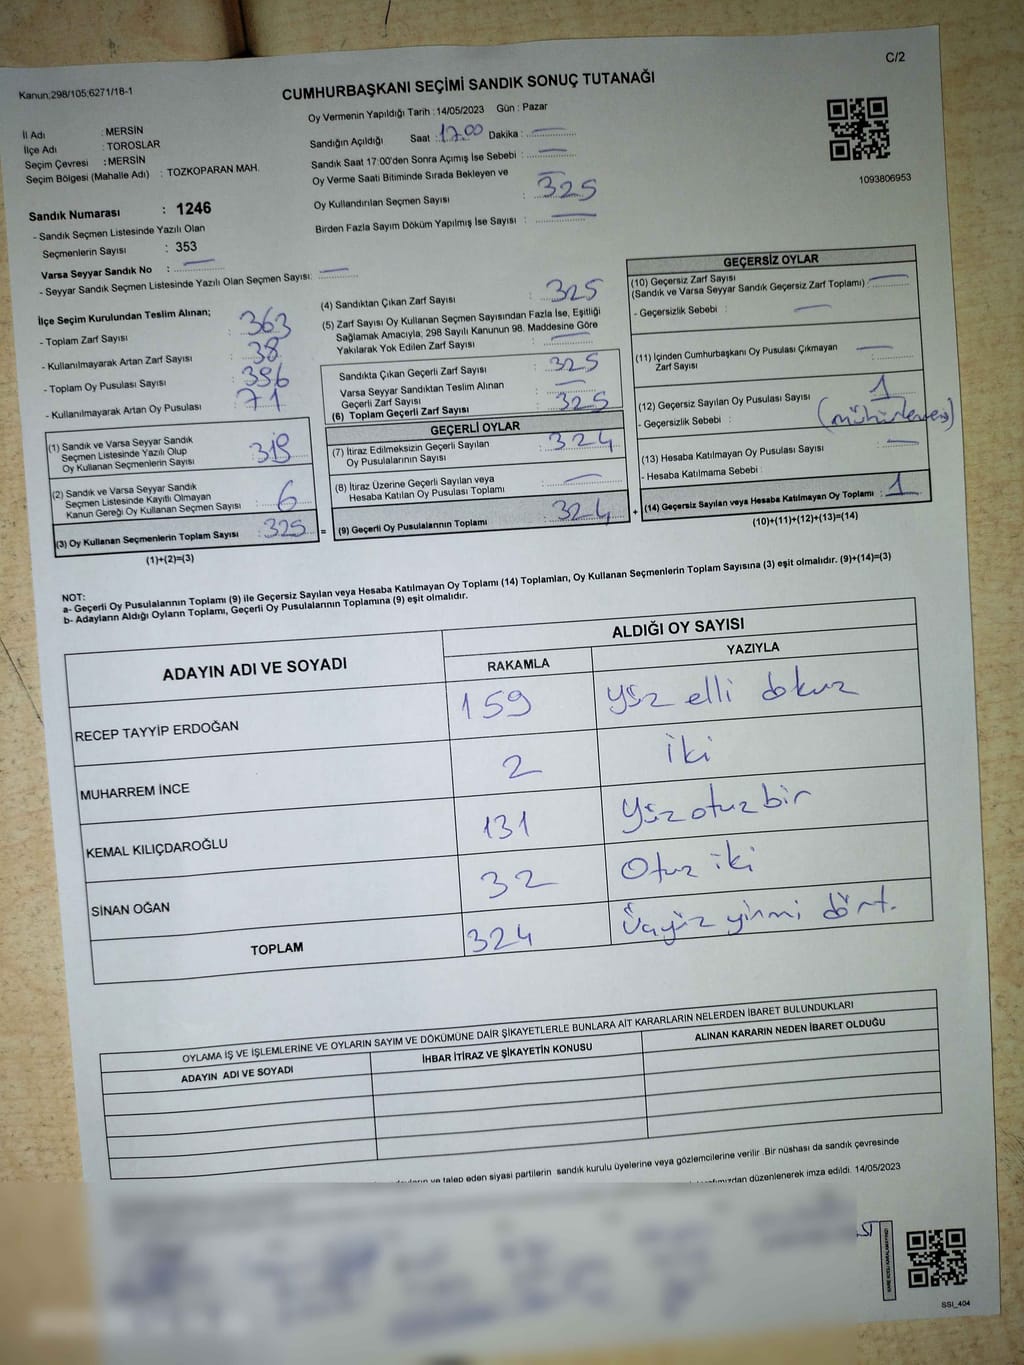 C/2
Kanun:298/105;6271/18-1
CUMHURBAŞKANI SEÇİMİ SANDIK SONUÇ TUTANAĞI
İl Adı : MERSİN
İlçe Adı : TOROSLAR
Seçim Çevresi : MERSİN
Seçim Bölgesi (Mahalle Adı) : TOZKOPARAN MAH.
Oy Vermenin Yapıldığı Tarih : 14/05/2023 Gün : Pazar
Sandığın Açıldığı Saat : 17.00 Dakika : —
Sandık Saat 17:00'den Sonra Açımış İse Sebebi : —
Oy Verme Saati Bitiminde Sırada Bekleyen ve
Oy Kullandırılan Seçmen Sayısı : 325
Birden Fazla Sayım Döküm Yapılmış İse Sayısı : —
1093806953
Sandık Numarası : 1246
- Sandık Seçmen Listesinde Yazılı Olan
Seçmenlerin Sayısı : 353
Varsa Seyyar Sandık No : —
- Seyyar Sandık Seçmen Listesinde Yazılı Olan Seçmen Sayısı: —
İlçe Seçim Kurulundan Teslim Alınan;
- Toplam Zarf Sayısı : 363
- Kullanılmayarak Artan Zarf Sayısı : 38
- Toplam Oy Pusulası Sayısı : 396
- Kullanılmayarak Artan Oy Pusulası : 71
(1) Sandık ve Varsa Seyyar Sandık
Seçmen Listesinde Yazılı Olup
Oy Kullanan Seçmenlerin Sayısı : 319
(2) Sandık ve Varsa Seyyar Sandık
Seçmen Listesinde Kayıtlı Olmayan
Kanun Gereği Oy Kullanan Seçmen Sayısı : 6
(3) Oy Kullanan Seçmenlerin Toplam Sayısı : 325
(1)+(2)=(3)
(4) Sandıktan Çıkan Zarf Sayısı : 325
(5) Zarf Sayısı Oy Kullanan Seçmen Sayısından Fazla İse, Eşitliği
Sağlamak Amacıyla, 298 Sayılı Kanunun 98. Maddesine Göre
Yakılarak Yok Edilen Zarf Sayısı : —
Sandıkta Çıkan Geçerli Zarf Sayısı : 325
Varsa Seyyar Sandıktan Teslim Alınan
Geçerli Zarf Sayısı : —
(6) Toplam Geçerli Zarf Sayısı : 325
GEÇERLİ OYLAR
(7) İtiraz Edilmeksizin Geçerli Sayılan
Oy Pusulalarının Sayısı : 324
(8) İtiraz Üzerine Geçerli Sayılan veya
Hesaba Katılan Oy Pusulası Toplamı : —
= (9) Geçerli Oy Pusulalarının Toplamı : 324 +
GEÇERSİZ OYLAR
(10) Geçersiz Zarf Sayısı
(Sandık ve Varsa Seyyar Sandık Geçersiz Zarf Toplamı) : —
- Geçersizlik Sebebi : —
(11) İçinden Cumhurbaşkanı Oy Pusulası Çıkmayan
Zarf Sayısı : —
(12) Geçersiz Sayılan Oy Pusulası Sayısı : 1
- Geçersizlik Sebebi :
(13) Hesaba Katılmayan Oy Pusulası Sayısı : —
- Hesaba Katılmama Sebebi :
(14) Geçersiz Sayılan veya Hesaba Katılmayan Oy Toplamı : 1
(10)+(11)+(12)+(13)=(14)
NOT:
a- Geçerli Oy Pusulalarının Toplamı (9) ile Geçersiz Sayılan veya Hesaba Katılmayan Oy Toplamı (14) Toplamları, Oy Kullanan Seçmenlerin Toplam Sayısına (3) eşit olmalıdır. (9)+(14)=(3)
b- Adayların Aldığı Oyların Toplamı, Geçerli Oy Pusulalarının Toplamına (9) eşit olmalıdır.
ADAYIN ADI VE SOYADI ALDIĞI OY SAYISI
RAKAMLA YAZIYLA
RECEP TAYYİP ERDOĞAN 159 yüz elli dokuz
MUHARREM İNCE 2 iki
KEMAL KILIÇDAROĞLU 131 yüz otuz bir
SİNAN OĞAN 32 Otuz iki
TOPLAM 324 Üçyüz yirmi dört.
OYLAMA İŞ VE İŞLEMLERİNE VE OYLARIN SAYIM VE DÖKÜMÜNE DAİR ŞİKAYETLERLE BUNLARA AİT KARARLARIN NELERDEN İBARET BULUNDUKLARI
ADAYIN ADI VE SOYADI İHBAR İTİRAZ VE ŞİKAYETİN KONUSU ALINAN KARARIN NEDEN İBARET OLDUĞU
ve talep eden siyasi partilerin sandık kurulu üyelerine veya gözlemcilerine verilir. Bir nüshası da sandık çevresinde
düzenlenerek imza edildi. 14/05/2023
SSI_404